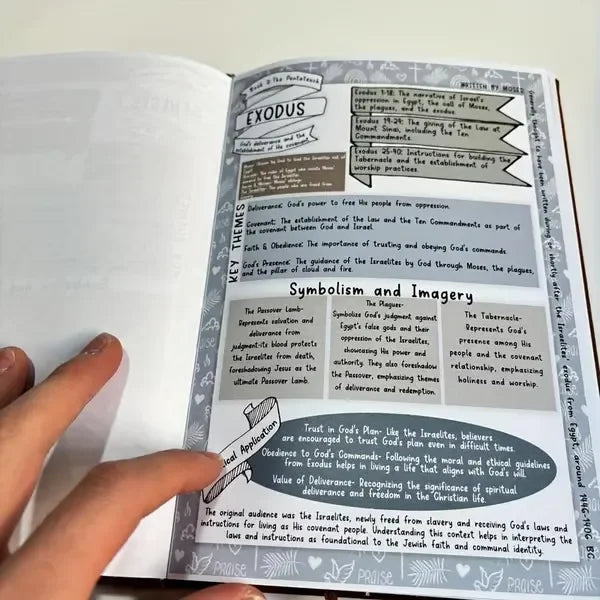 Book 2: The Pentateuch
EXODUS
God's deliverance and the
establishment of His covenant.
WRITTEN BY MOSES
Exodus 1-18: The narrative of Israel's
oppression in Egypt, the call of Moses,
the plagues, and the exodus.
Exodus 19-24: The giving of the Law at
Mount Sinai, including the Ten
Commandments.
Exodus 25-40: Instructions for building the
Tabernacle and the establishment of
worship practices.
KEY THEMES
Deliverance: God's power to free His people from oppression.
Covenant: The establishment of the Law and the Ten Commandments as part of
the covenant between God and Israel.
Faith & Obedience: The importance of trusting and obeying God's commands.
God's Presence: The guidance of the Israelites by God through Moses, the plagues,
and the pillar of cloud and fire.
Symbolism and Imagery
The Passover Lamb-
Represents salvation and
deliverance from
judgment-its blood protects
the Israelites from death,
foreshadowing Jesus as the
ultimate Passover Lamb.
The Plagues-
Symbolize God's judgment against
Egypt's false gods and their
oppression of the Israelites,
showcasing His power and
authority. They also foreshadow
the Passover, emphasizing themes
of deliverance and redemption.
The Tabernacle-
Represents God's
presence among His
people and the covenant
relationship, emphasizing
holiness and worship.
Application
Trust in God's Plan- Like the Israelites, believers
are encouraged to trust God's plan even in difficult times.
Obedience to God's Commands- Following the moral and ethical guidelines
from Exodus helps in living a life that aligns with God's will.
Value of Deliverance- Recognizing the significance of spiritual
deliverance and freedom in the Christian life.
The original audience was the Israelites, newly freed from slavery and receiving God's laws and
instructions for living as His covenant people. Understanding this context helps in interpreting the
laws and instructions as foundational to the Jewish faith and communal identity.
thought to have been written during or shortly after the Israelites' exodus from Egypt, around 1446-1406 BC
PRAISE
PRAISE
PRAISE